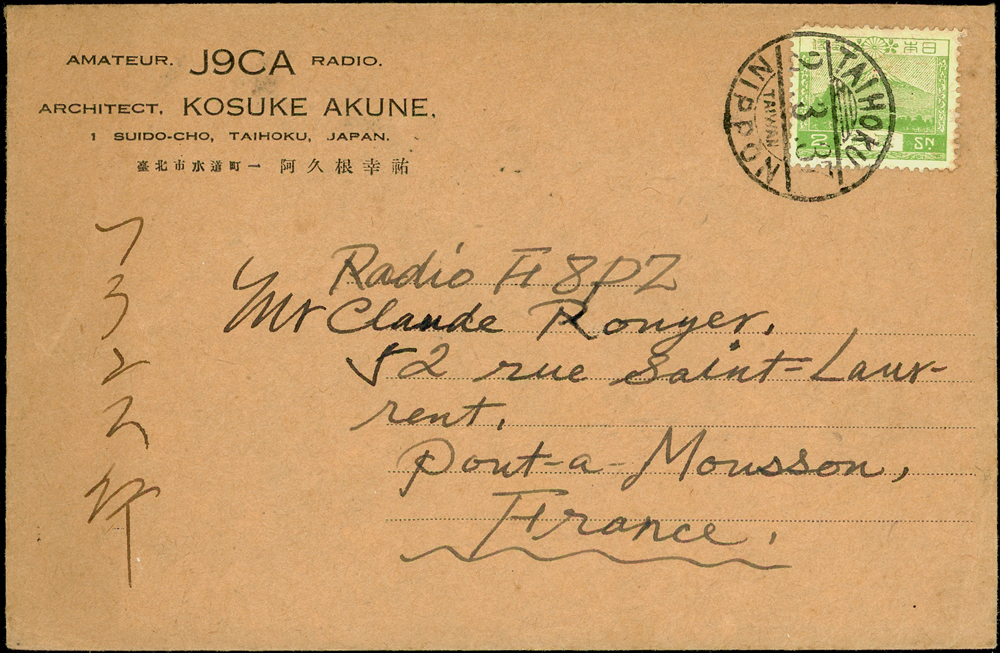 AMATEUR. J9CA RADIO.
ARCHITECT, KOSUKE AKUNE,
1 SUIDO-CHO, TAIHOKU, JAPAN.
臺北市水道町一 阿久根幸祐
日本
2 SN
TAIHOKU
TAIWAN
NIPPON
フランス行
Radio F8PZ
Mr Claude Ronyer,
52 rue Saint-Laur-
rent,
Pont-a-Mousson,
France.